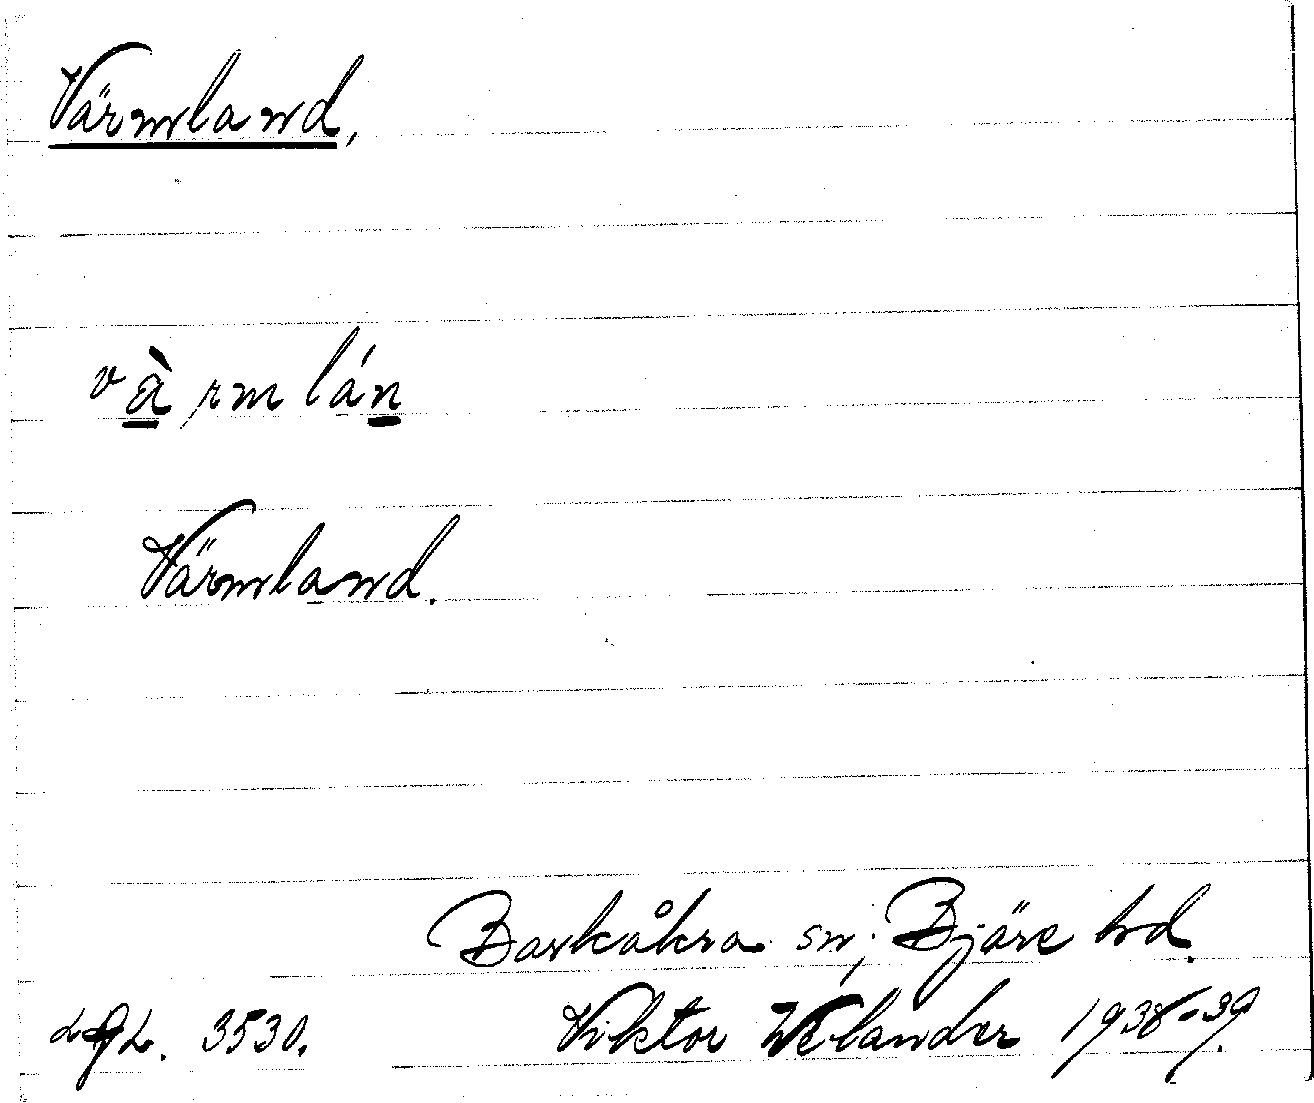 Värmland,
và rm lán
Värmland.
Barkåkra sn; Bjäre hd.
3530. Viktor Welander 1938-39.